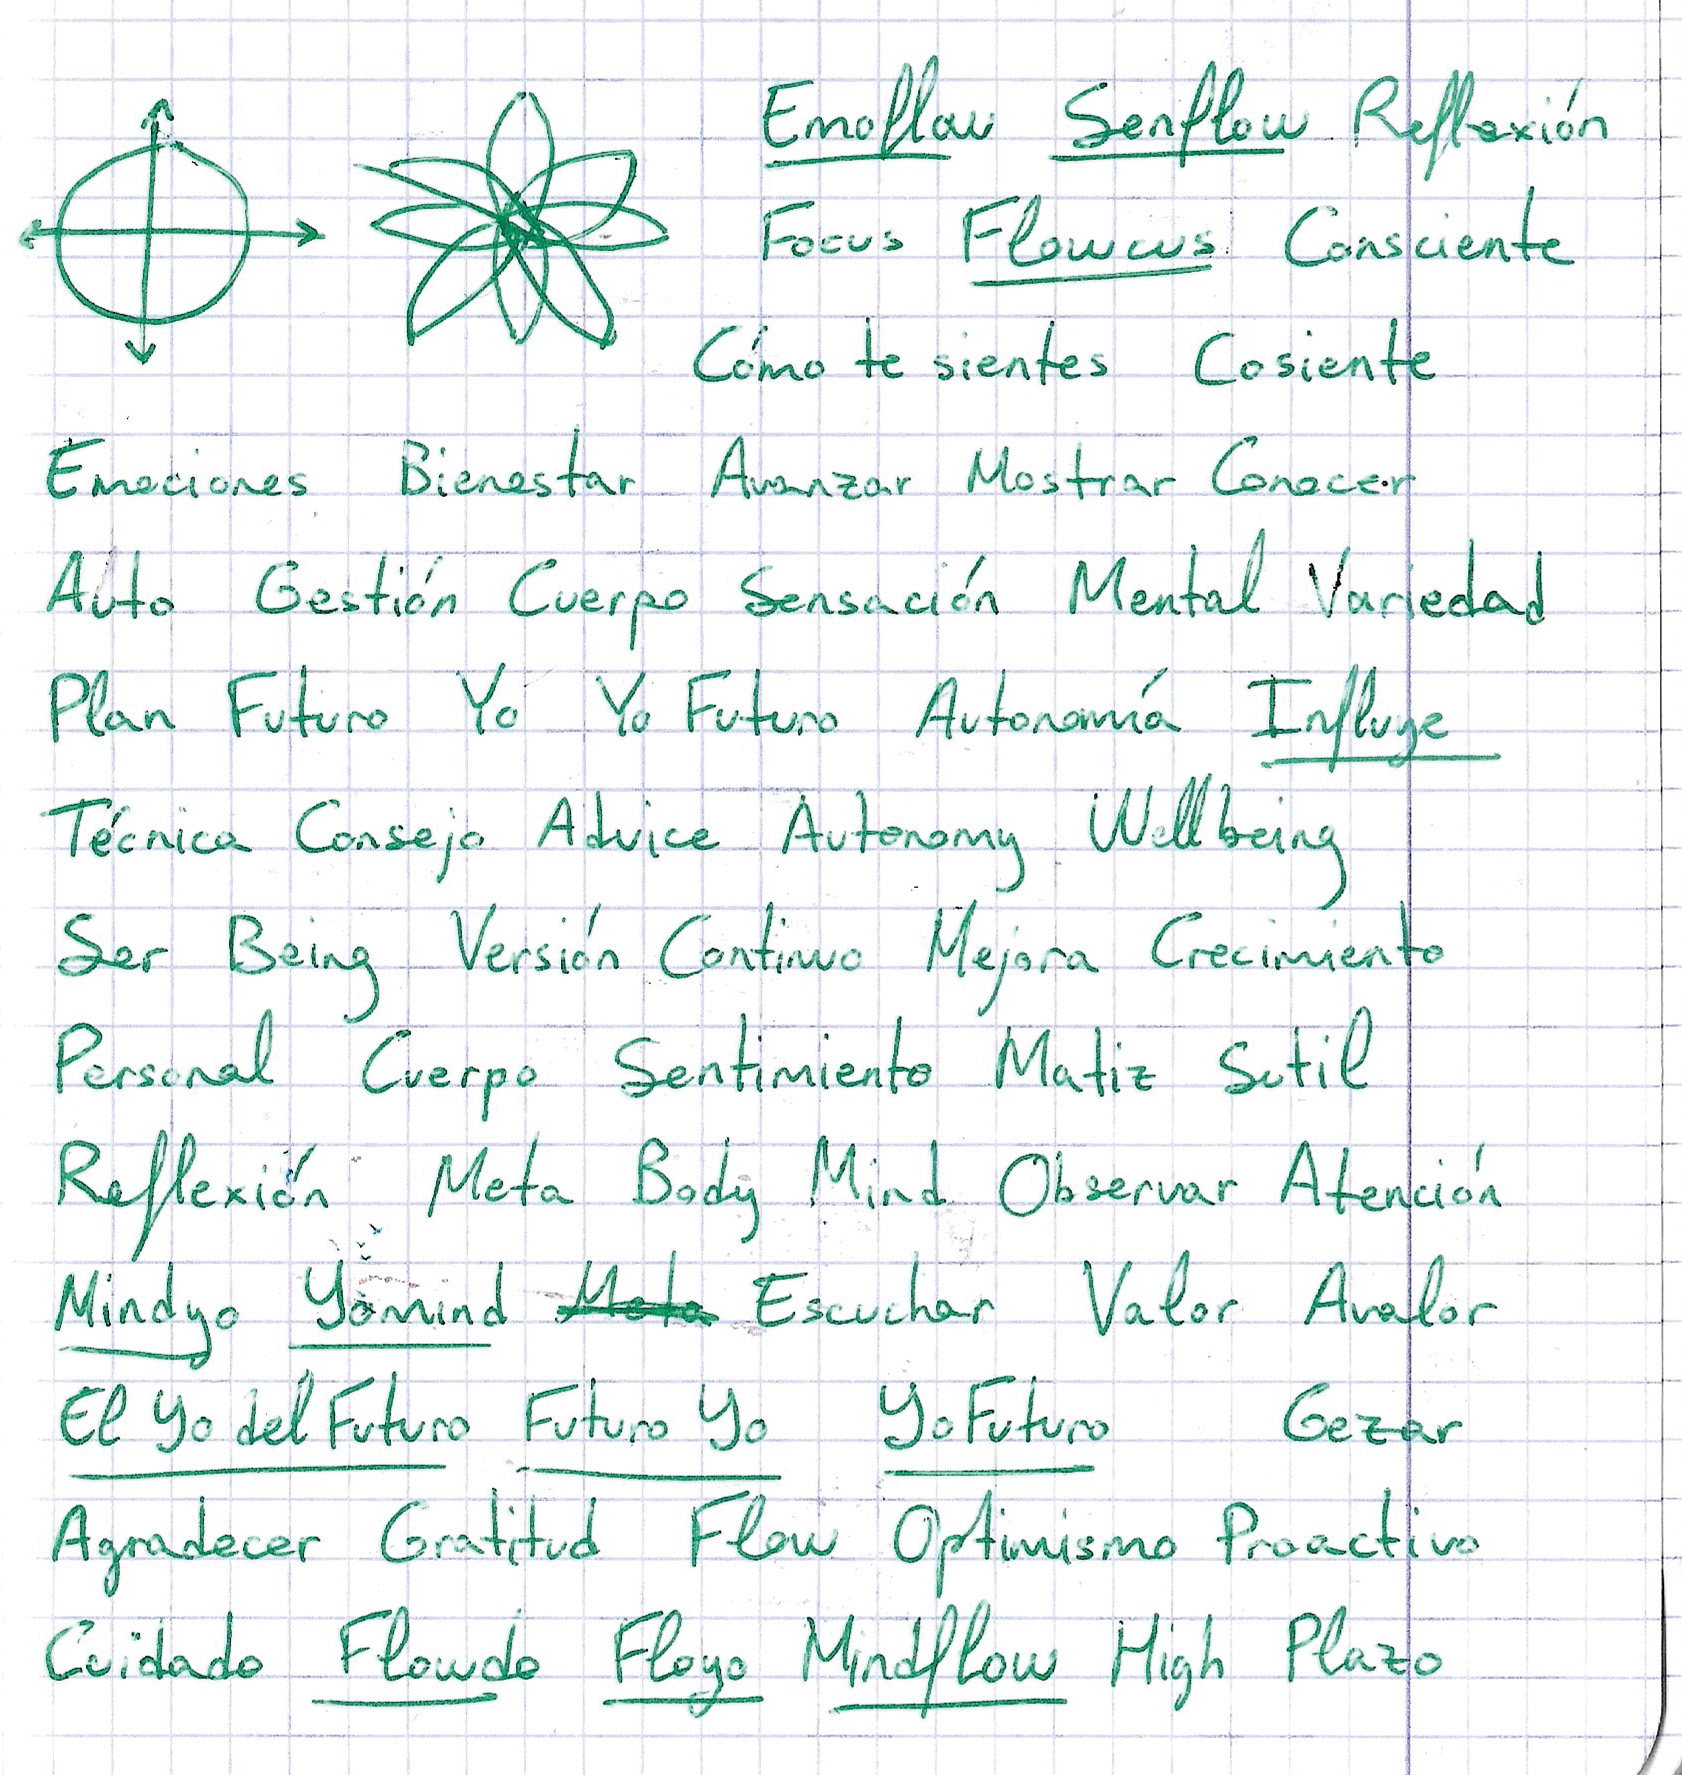 Emoflow Senflow Reflexión
Focus Flowcus Consciente
Cómo te sientes Cosiente
Emociones Bienestar Avanzar Mostrar Conocer
Auto Gestión Cuerpo Sensación Mental Variedad
Plan Futuro Yo Yo Futuro Autonomía Influye
Técnica Consejo Advice Autonomy Wellbeing
Ser Being Versión Continuo Mejora Crecimiento
Personal Cuerpo Sentimiento Matiz Sutil
Reflexión Meta Body Mind Observar Atención
Mindyo Yomind Meta Escuchar Valor Avalor
El yo del Futuro Futuro yo yoFuturo Gezar
Agradecer Gratitud Flow Optimismo Proactivo
Cuidado Flowdo Floyo Mindflow High Plazo